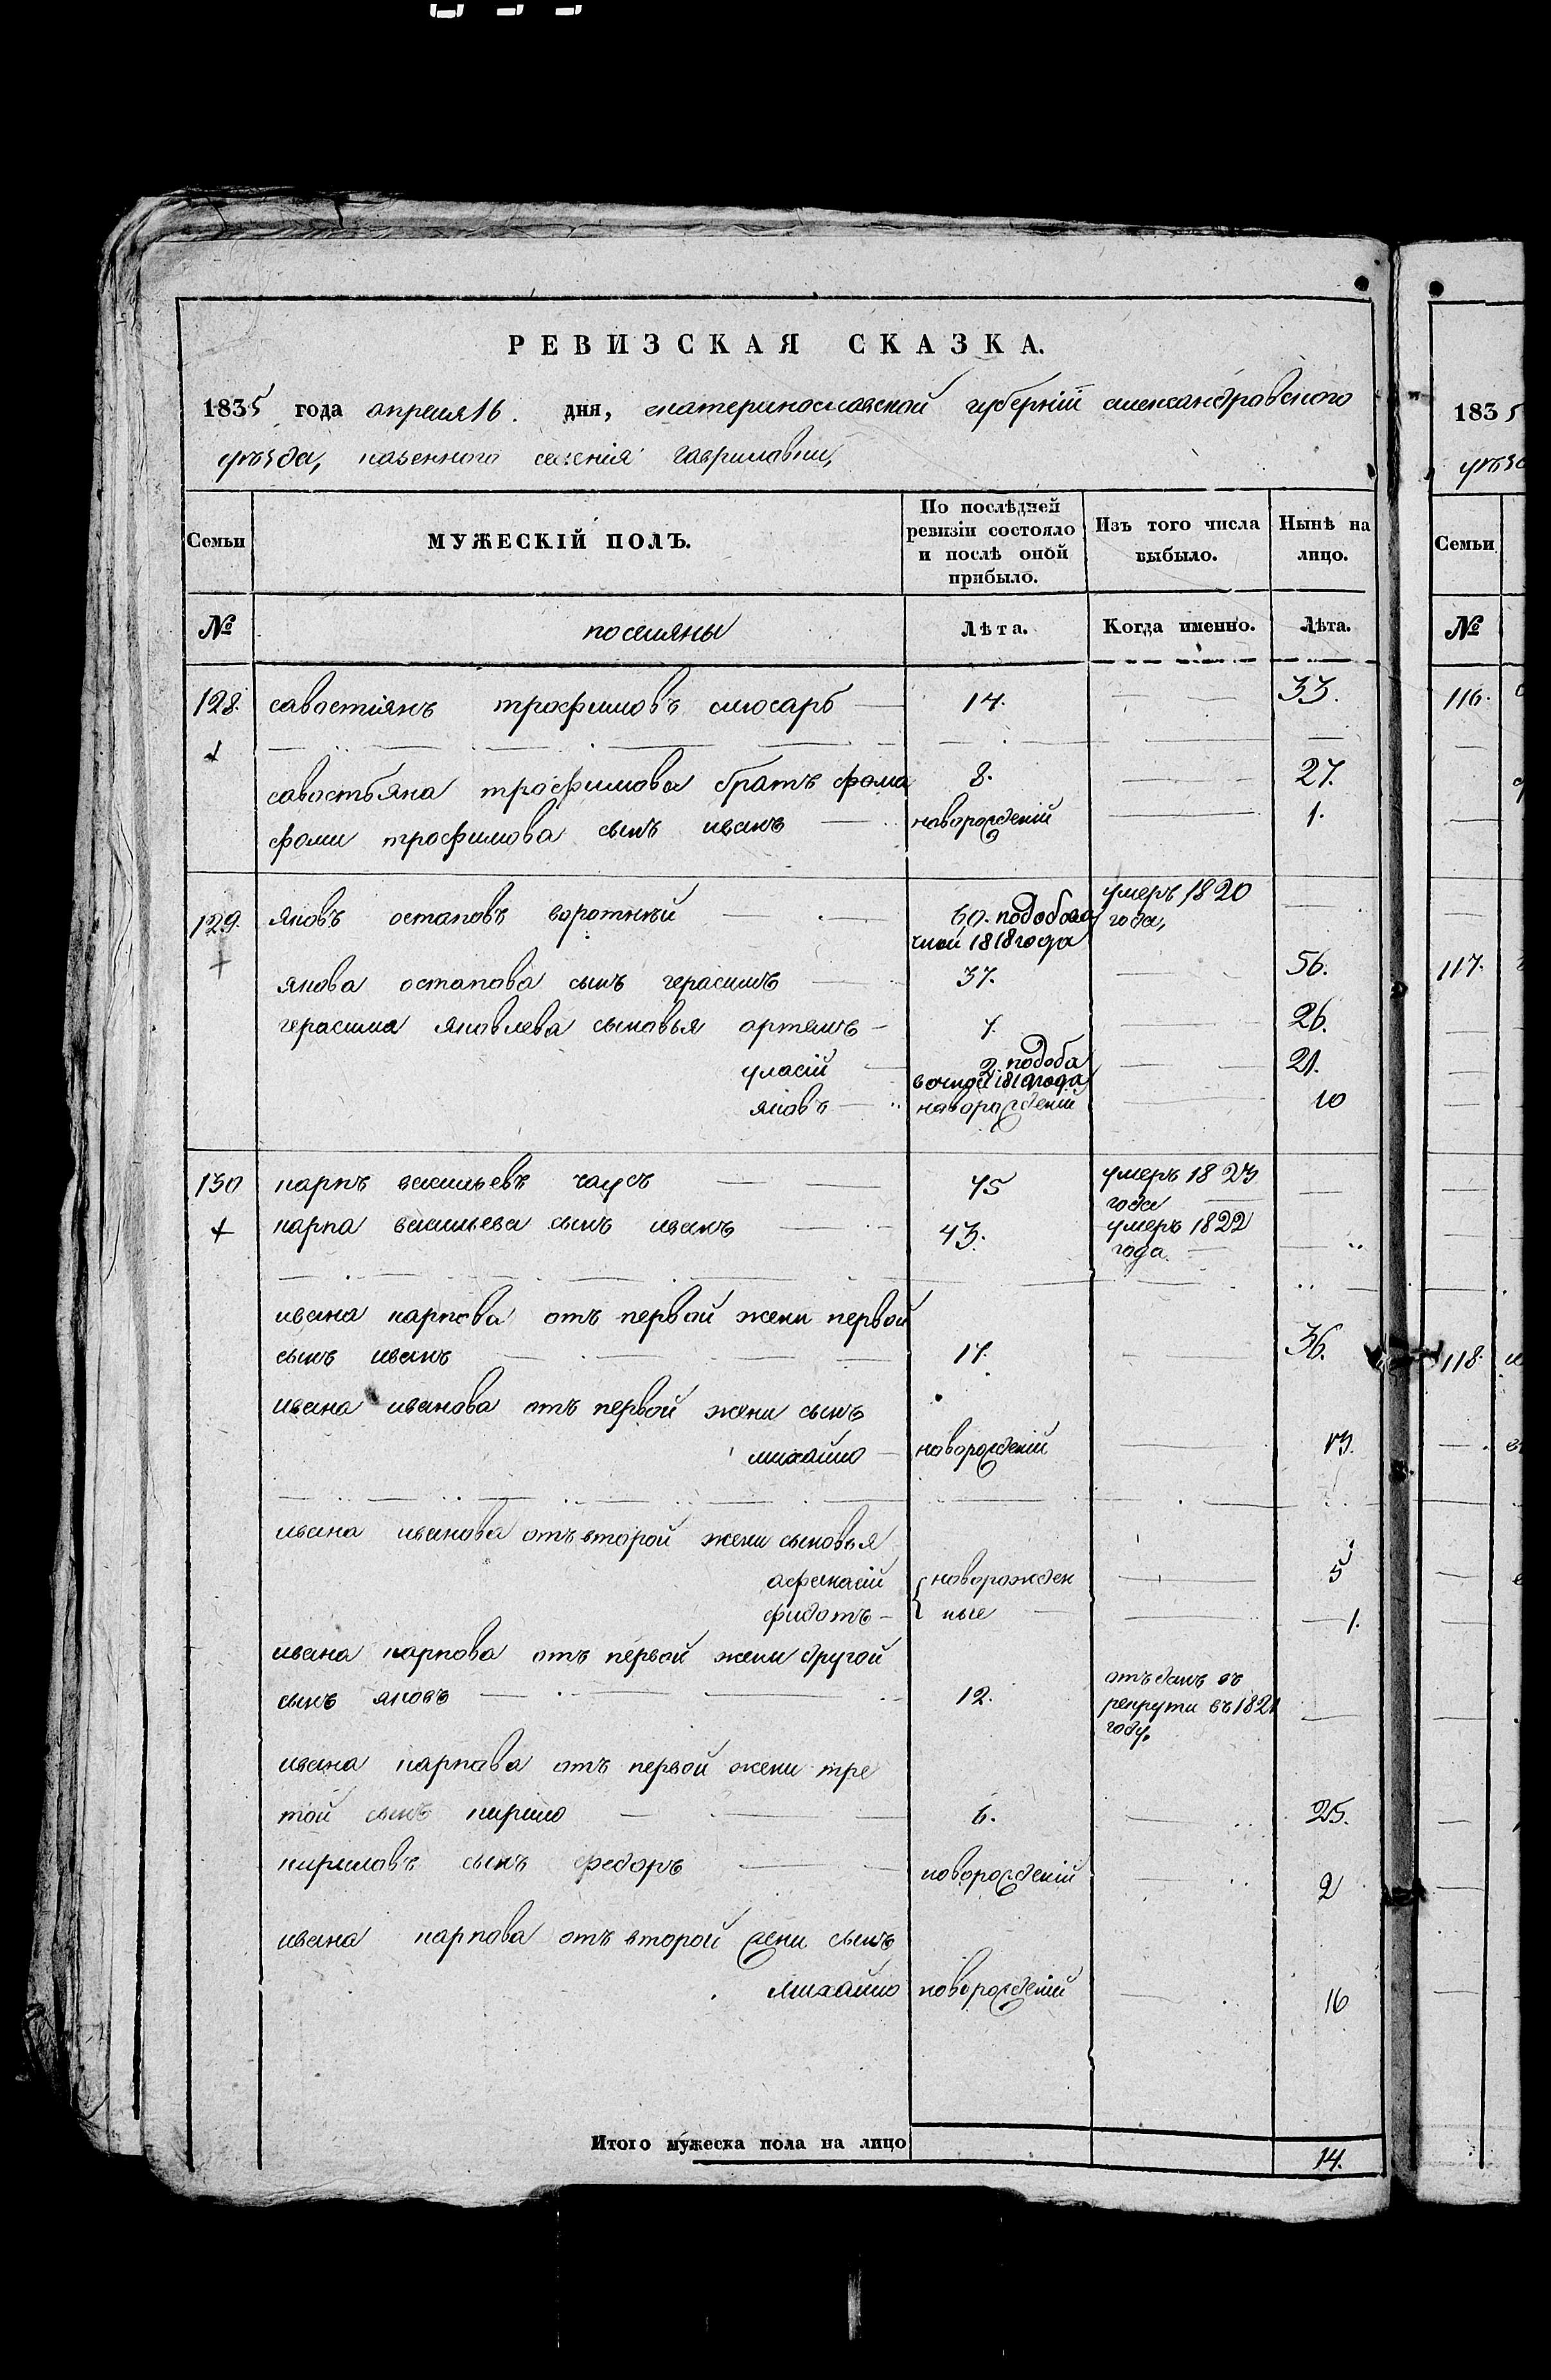 РЕВИЗСКАЯ СКАЗКА.
1835 года апреля 16. дня, екатеринославской губерніи александровского
уѣзда, казенного селенія гавриловки,
Семьи
МУЖЕСКІЙ ПОЛЪ.
По послѣдней ревизіи состояло и послѣ оной прибыло.
Изъ того числа выбыло.
Нынѣ на лицо.
№ поселяны Лѣта. Когда именно. Лѣта.
128. савостіянъ трофимовъ слюсарь 14. 33.
савостьяна трофимова братъ фома 8. 27.
фоми трофимова сынъ иванъ новорожденій 1.
129. яковъ остаповъ воротній 60. подобола чкой 1818 года умеръ 1820 года,
якова остапова сынъ герасимъ 37. 56.
герасима яковлева сыновья артемъ 7. 26.
уласій 2. 21.
яковъ новорожденій 10
130 карпъ васильевъ чаусъ 75 умеръ 1823 года
карпа васильева сынъ иванъ 43. умеръ 1822 года
ивана карпова отъ первой жени первой
сынъ иванъ 17. 36.
ивана иванова отъ первой жени сынъ
михайло новорожденій 13.
ивана иванова отъ второй жени сыновья
афанасій новорожден 5
федотъ ные 1.
ивана карпова отъ первой жени другой
сынъ яковъ 12. отъданъ въ рекрути въ 1821 году.
ивана карпова отъ первой жени тре
той сынъ кирило 6. 25.
кириловъ сынъ федоръ новорожденій 2
ивана карпова отъ второй жени сынъ
михайло новорожденій 16
Итого мужеска пола на лицо 14.
1835
уѣзд
Семьи
№
116.
117.
118.